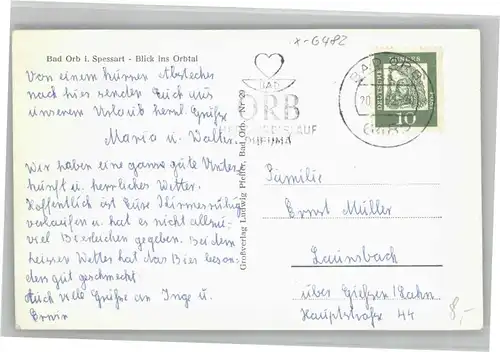 x-G482
Bad Orb i. Spessart - Blick ins Orbtal
Von einem kurzen Abstecher
nach hier senden Euch aus
unserem Urlaub herzl. Grüße
Maria u. Walter.
Wir haben eine ganz gute Unter
kunft u. herrliches Wetter.
Hoffentlich ist Eure Kirmes ruhig
verlaufen u. hat es nicht allzu-
viel Bierleichen gegeben. Bei dem
heissen Wetter hat das Bier beson-
ders gut geschmeckt.
Auch viele Grüße an Inge u.
Erwin
Großverlag Ludwig Pfeffer, Bad Orb, Nr. 29
BAD
ORB
BAD ORB
20.
DEUTSCHE BUNDESPOST
10
Familie
Ernst Müller
Launsbach
über Gießen/Lahn
Hauptstraße 44
8,-